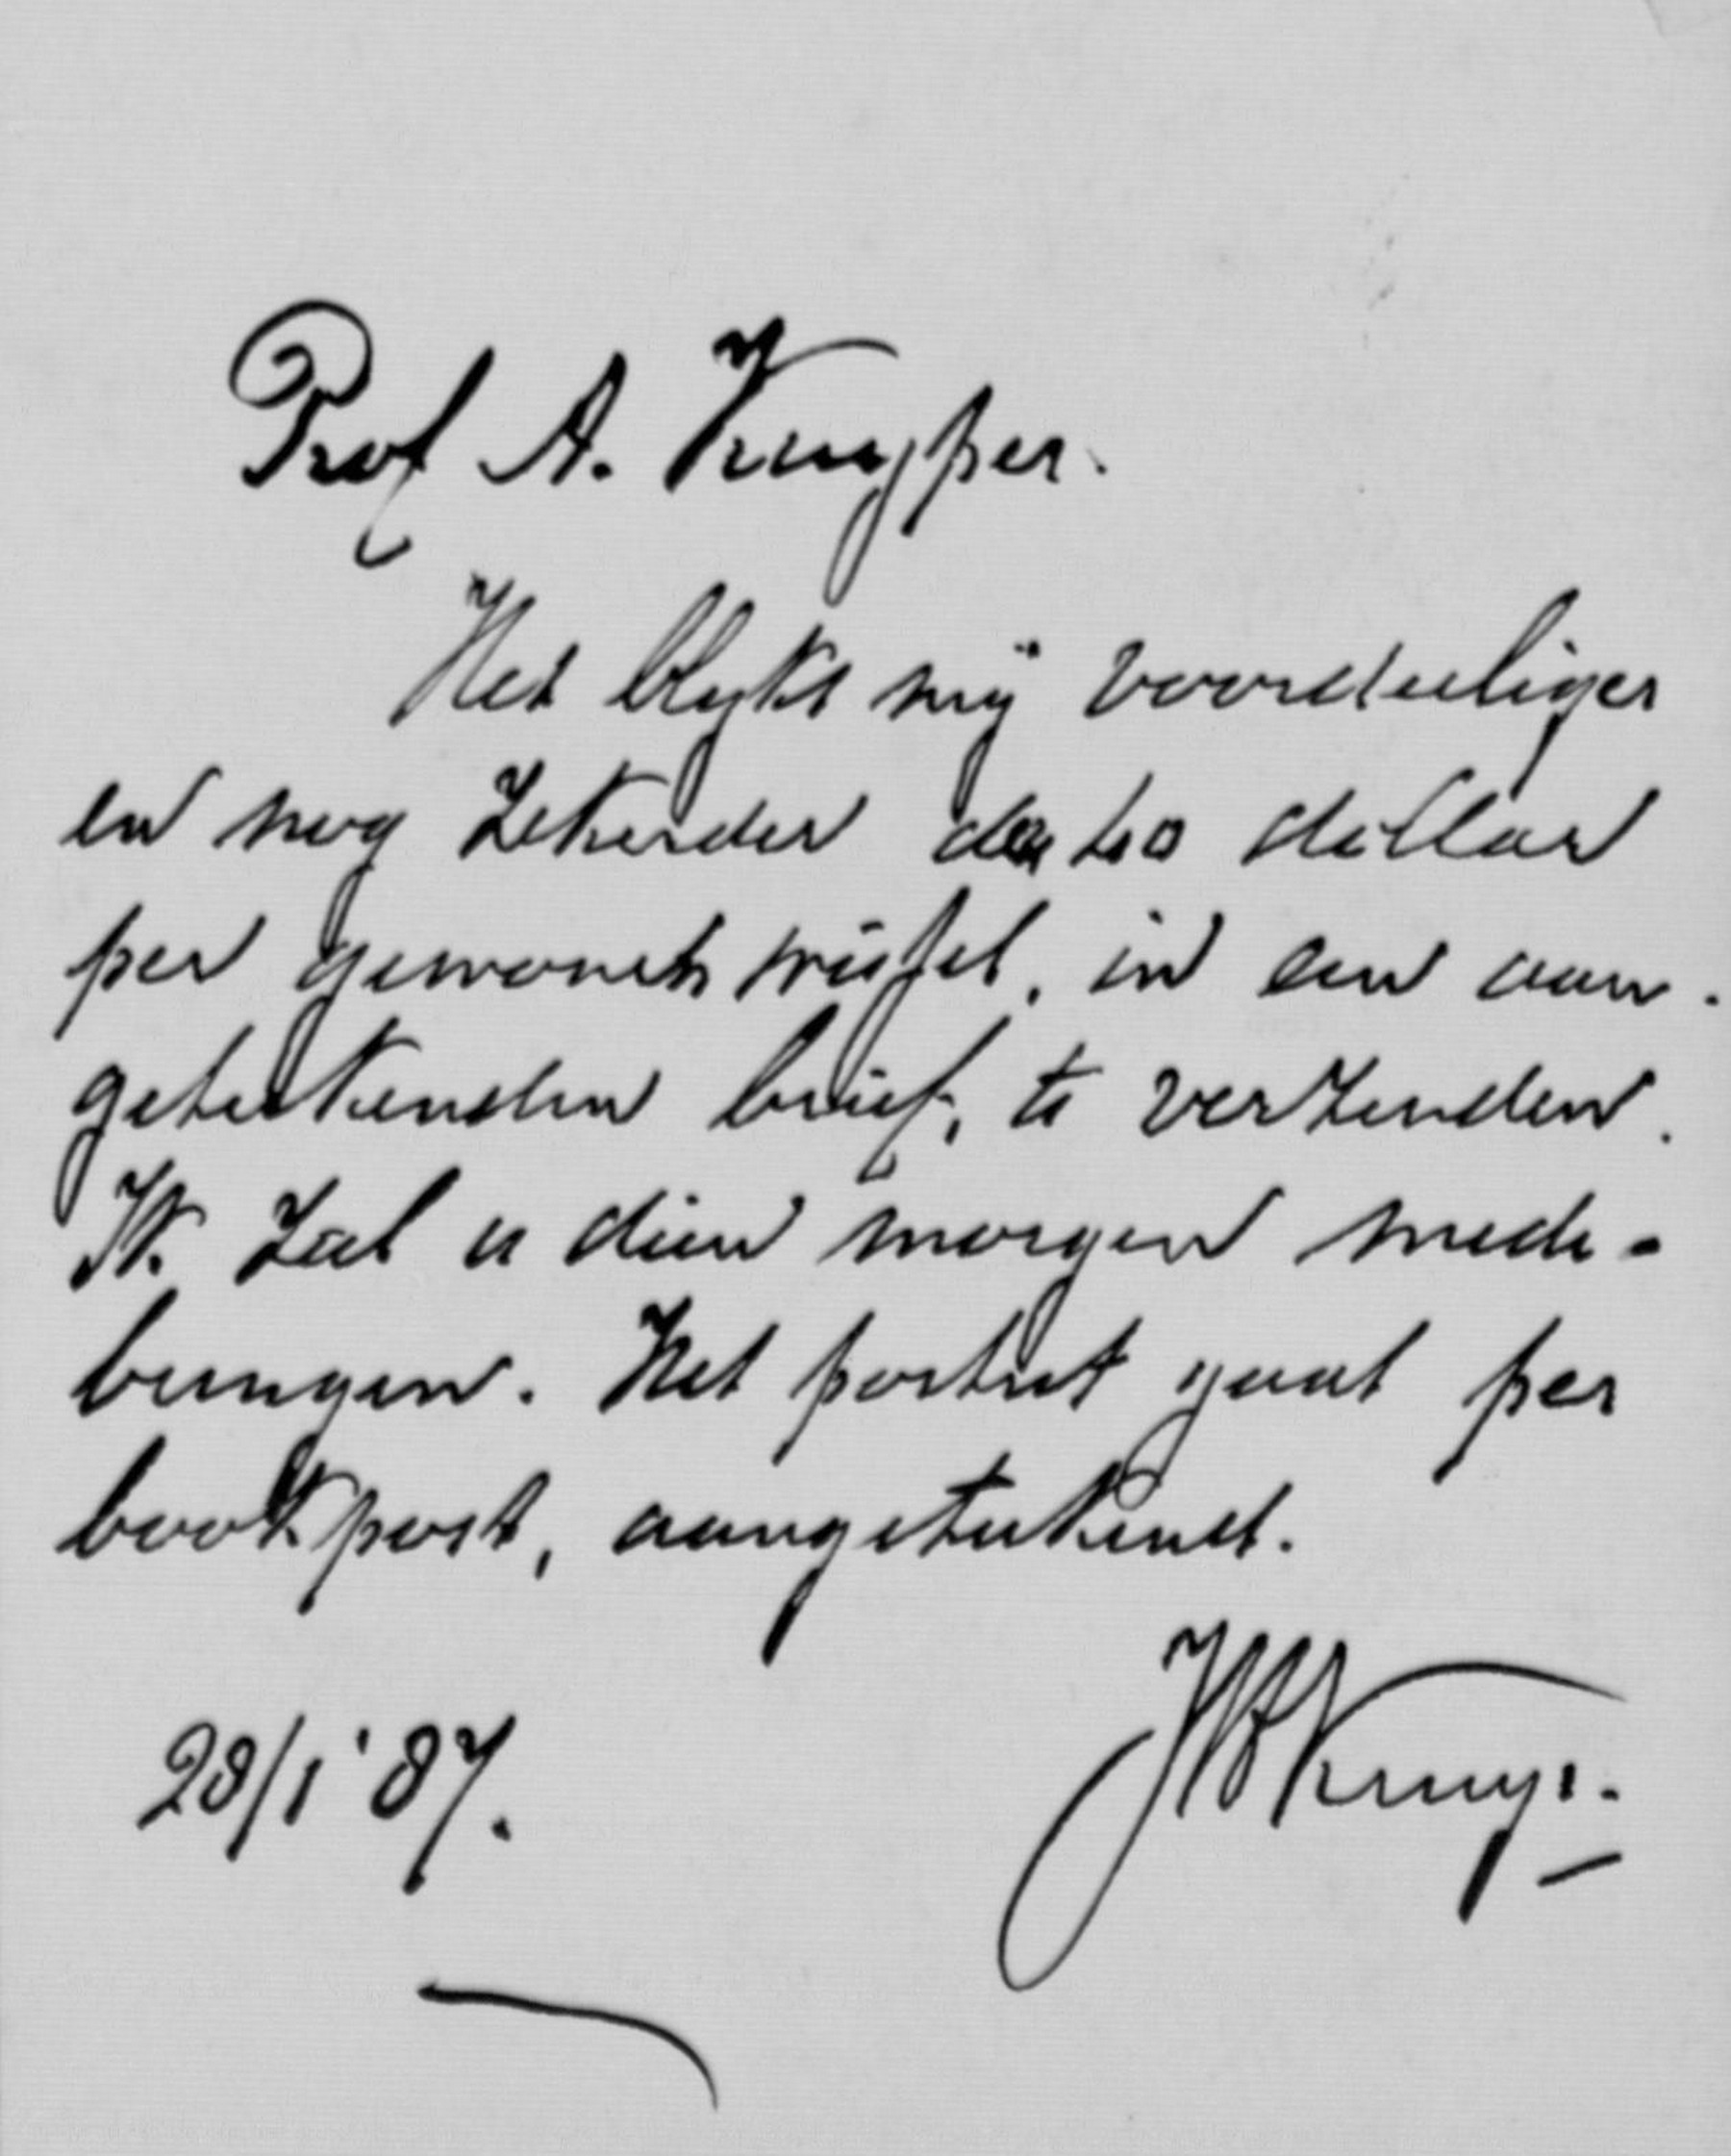 Prof A. Kuyper.
Het blykt mij voordeeliger
en nog zekerder de 40 dollar
per gewone wissel, in een aan-
geteekenden brief, te verzenden.
Ik zal u dien morgen mede-
brengen. Het portret gaat per
bookpost, aangeteekend.
28/1 '87.